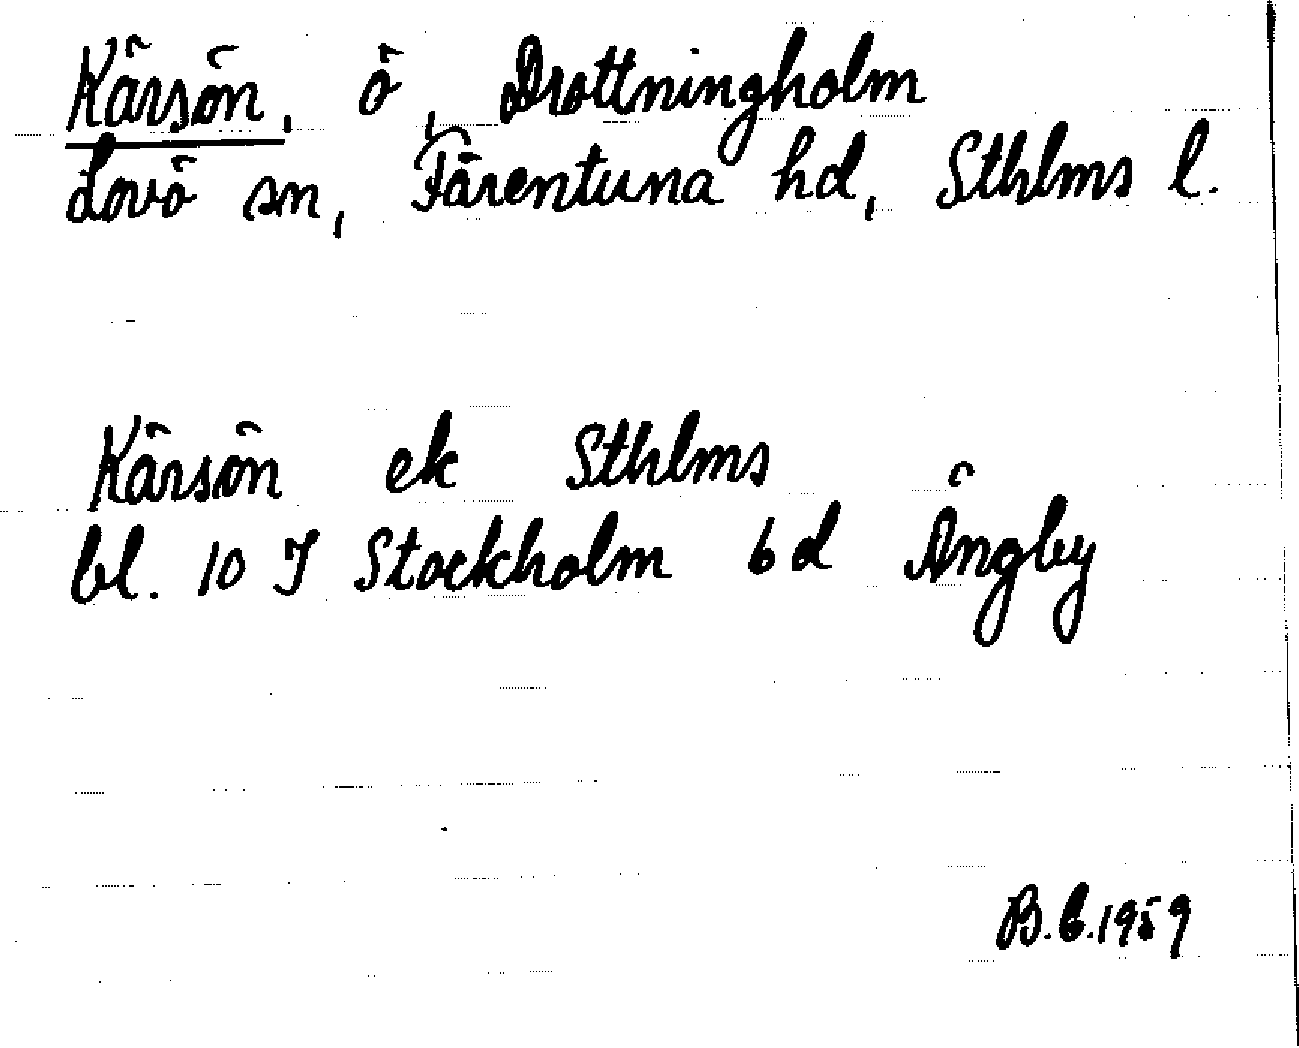 Kärsön, ö, Drottningholm
Lovö sn, Färentuna hd, Sthlms l.
Kärsön ek Sthlms
bl. 10 I Stockholm 6d Ängby
B.C.1959